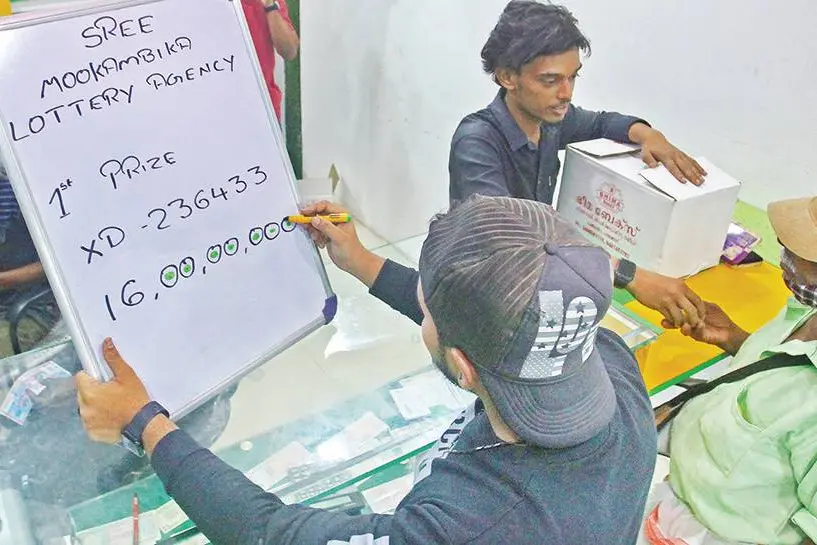 SREE
MOOKAMBIKA
LOTTERY AGENCY
1st PRIZE
XD - 236433
16,00,00,000
BHIMA
ഭീമ ബേക്സ്